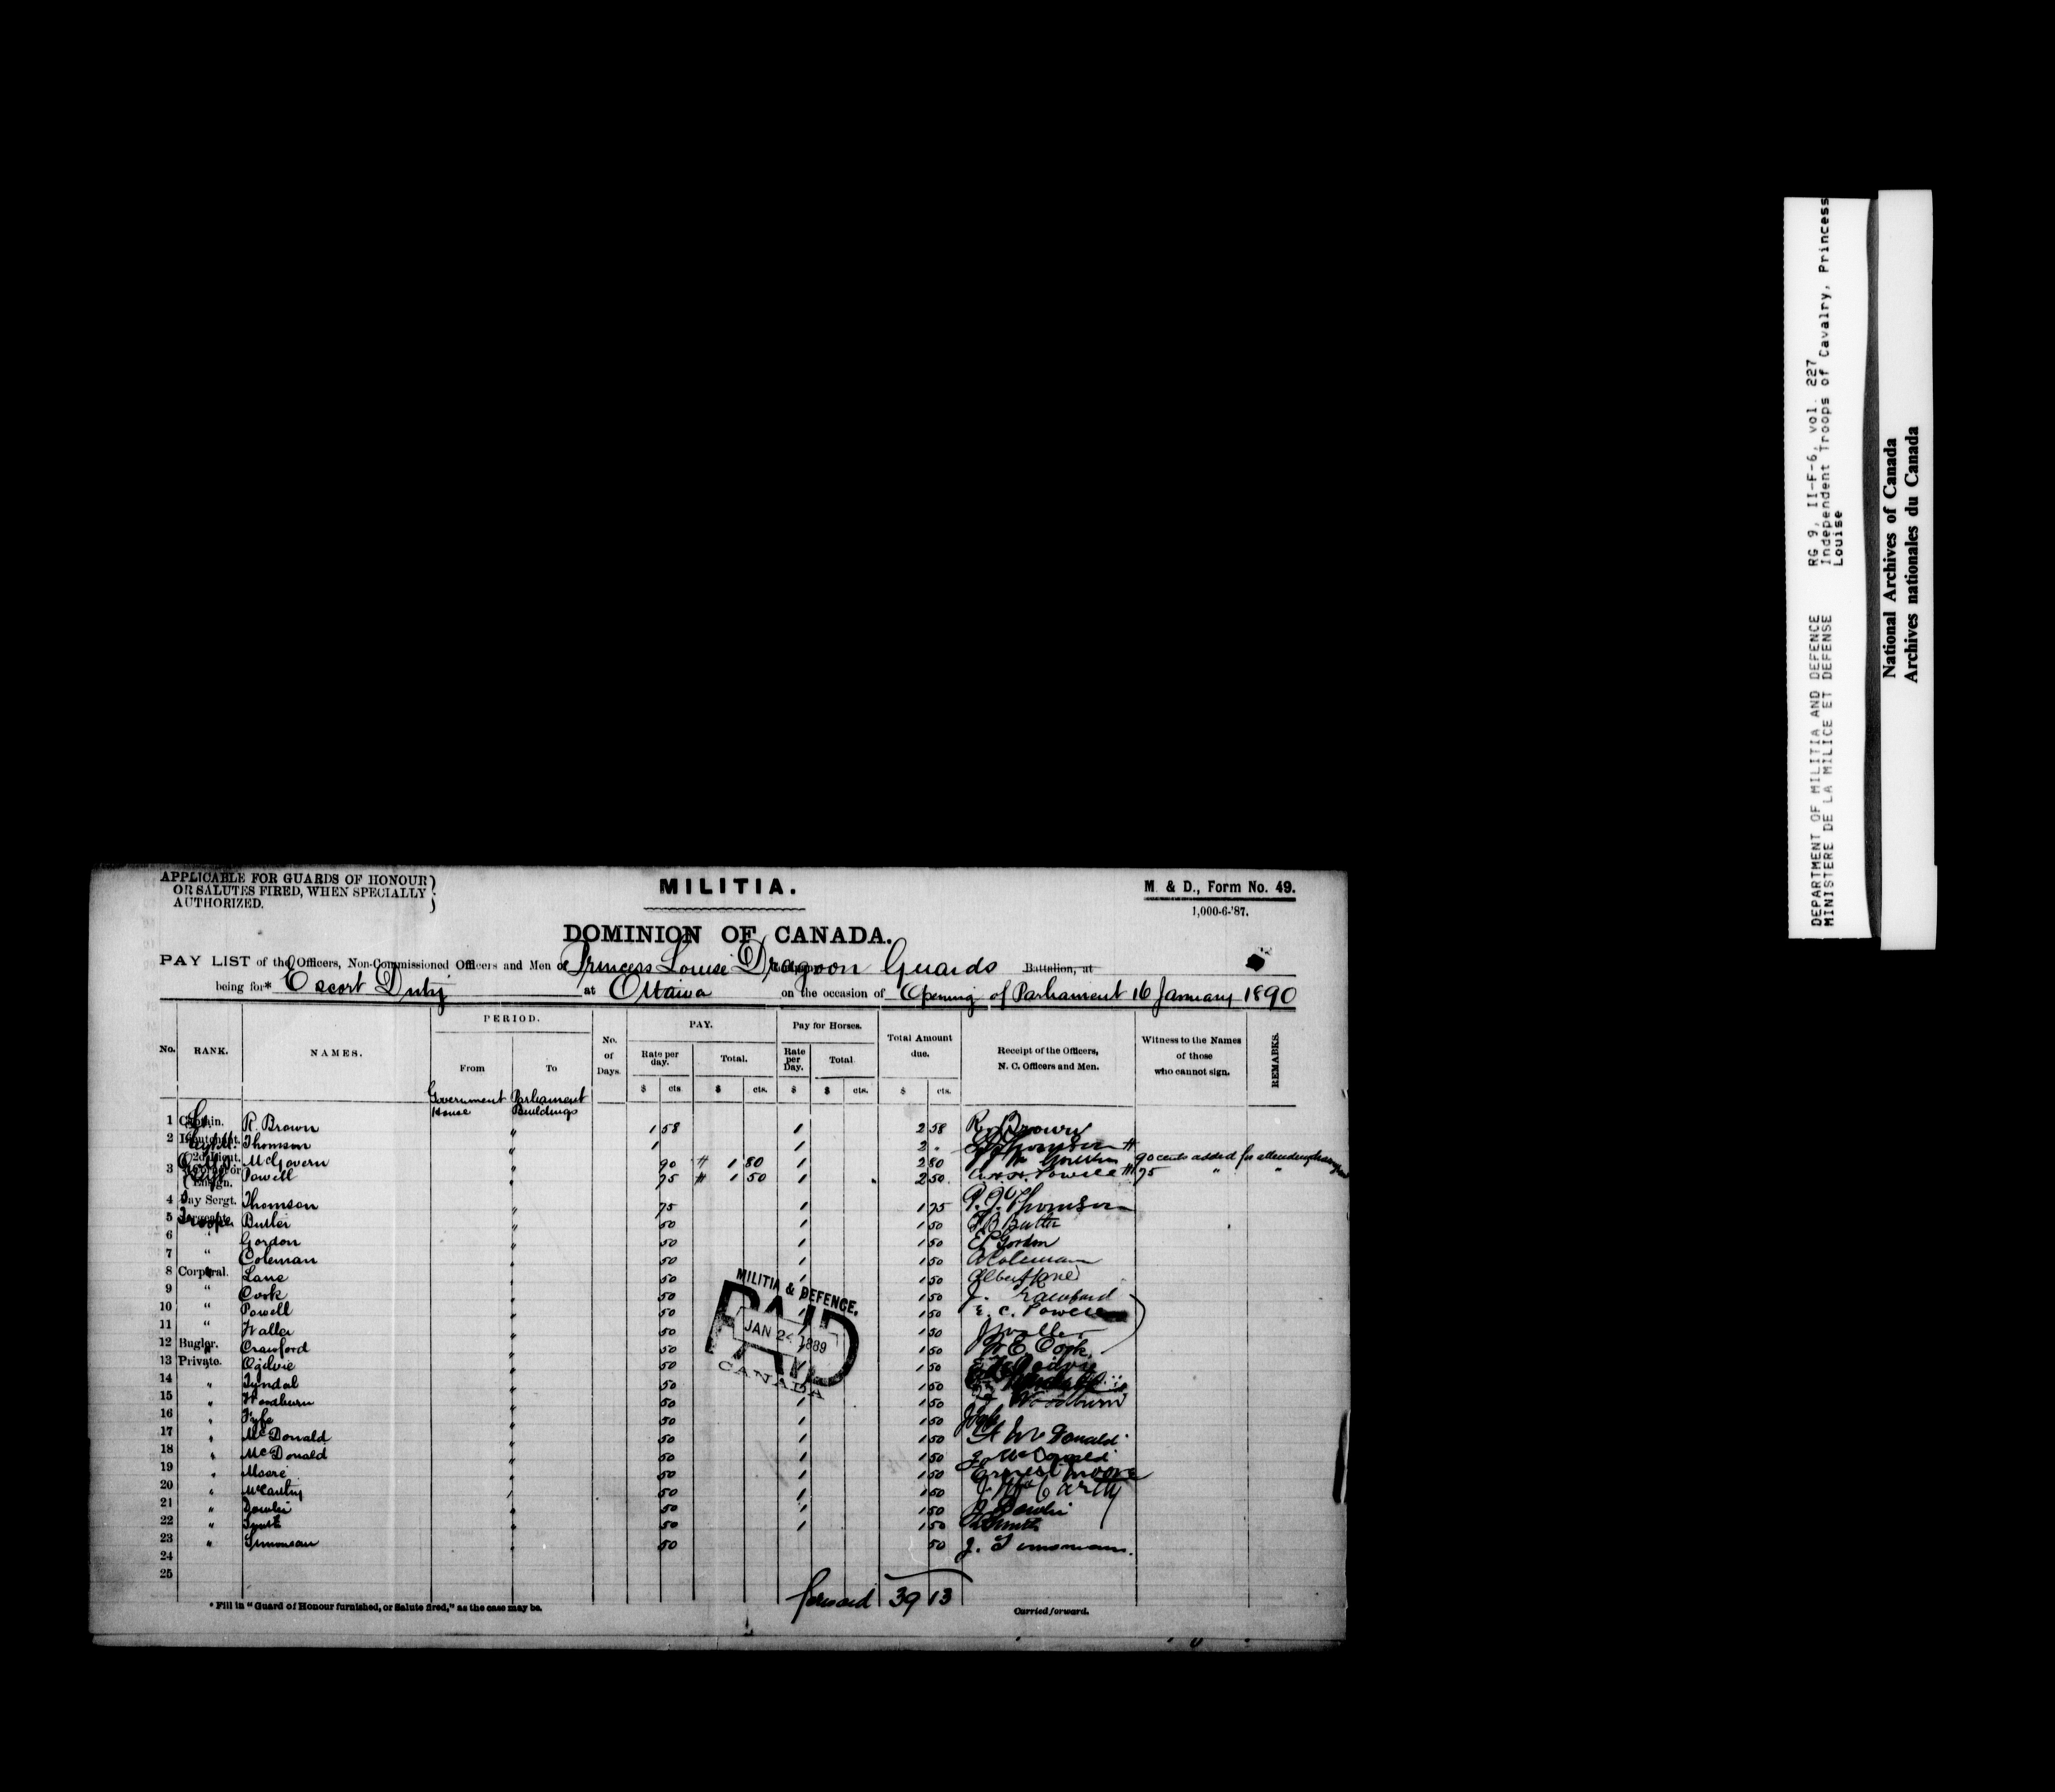 APPLICABLE FOR GUARDS OF HONOUR
OR SALUTES FIRED, WHEN SPECIALLY
AUTHORIZED.
MILITIA.
M. & D., Form No. 49.
1,000-6-'87.
DOMINION OF CANADA.
PAY LIST of the Officers, Non-Commissioned Officers and Men of Princess Louise Dragoon Guards Battalion, at
being for* Escort Duty at Ottawa on the occasion of Opening of Parliament 16 January 1890
No. RANK. NAMES. PERIOD. From To No. of Days. PAY. Rate per day. Total. Pay for Horses. Rate per Day. Total Total Amount due. Receipt of the Officers, N. C. Officers and Men. Witness to the Names of those who cannot sign. REMARKS.
$ cts $ cts. $ $ cts. $ cts.
Government House Parliament Buildings
1 Captain. R. Brown " 1 58 1 2 58
2 Lieutenant. Thomson " 1 1 2
McGovern " 90 # 1 80 1 2 80 90 cents added for attending
3 Powell " 75 # 1 50 1 2 50 75 " "
4 Pay Sergt. Thomson " 75 1 1 75
5 Butler " 50 1 1 50 Butler
6 " Gordon " 50 1 1 50 E Gordon
7 " Coleman " 50 1 1 50 A Coleman
8 Corporal. Lane " 50 1 1 50 Albert Lane
9 " Cook " 50 1 50 J. Crawford
10 " Powell " 50 1 50 E. C. Powell
11 " Waller " 50 1 50 J Waller
12 Bugler. Crawford " 50 1 50 W E Cook
13 Private. Ogilvie " 50 1 1 50
14 " Tyndal " 50 1 50
15 " Woodburn " 50 1 1 50 Woodburn
16 " Fyfe " 50 1 1 50
17 " McDonald " 50 1 1 50 A McDonald
18 " McDonald " 50 1 1 50 McDonald
19 " Moore " 50 1 1 50 Ernest Moore
20 " McCarthy " 50 1 1 50 J McCarthy
21 " Dowlin " 50 1 1 50 J Dowlin
22 " Smith " 50 1 1 50 Smith
23 " " 50 50
24
25
MILITIA & DEFENCE.
PAID
JAN 24 1889
CANADA
forward 39 13
* Fill in "Guard of Honour furnished, or Salute fired," as the case may be.
Carried forward.
DEPARTMENT OF MILITIA AND DEFENCE
MINISTERE DE LA MILICE ET DEFENSE
RG 9, II-F-6, vol. 227
Independent Troops of Cavalry, Princess
Louise
National Archives of Canada
Archives nationales du Canada